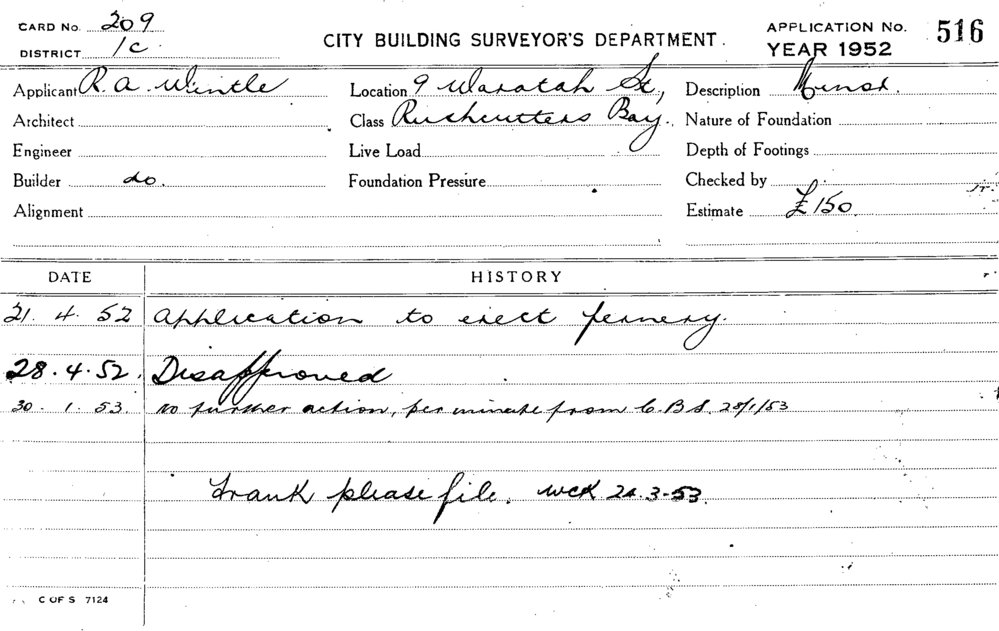 CARD No. 209
DISTRICT 1C.
CITY BUILDING SURVEYOR'S DEPARTMENT.
APPLICATION No. 516
YEAR 1952
Applicant R. A. Wintle
Location 9 Waratah St,
Description Minor.
Architect
Class Rushcutters Bay.
Nature of Foundation
Engineer
Live Load
Depth of Footings
Builder do.
Foundation Pressure
Checked by
Alignment
Estimate £150
DATE
HISTORY
21. 4. 52 Application to erect fernery.
28. 4. 52. Disapproved
30. 1. 53. no further action, per minute from C.B.S. /1/53
Frank please file. WCK .3-53.
C OF S 7124